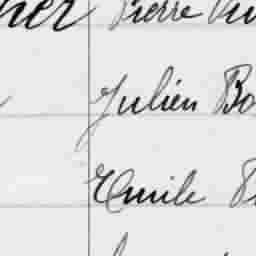 her Pierre
Julien Bo
Emile